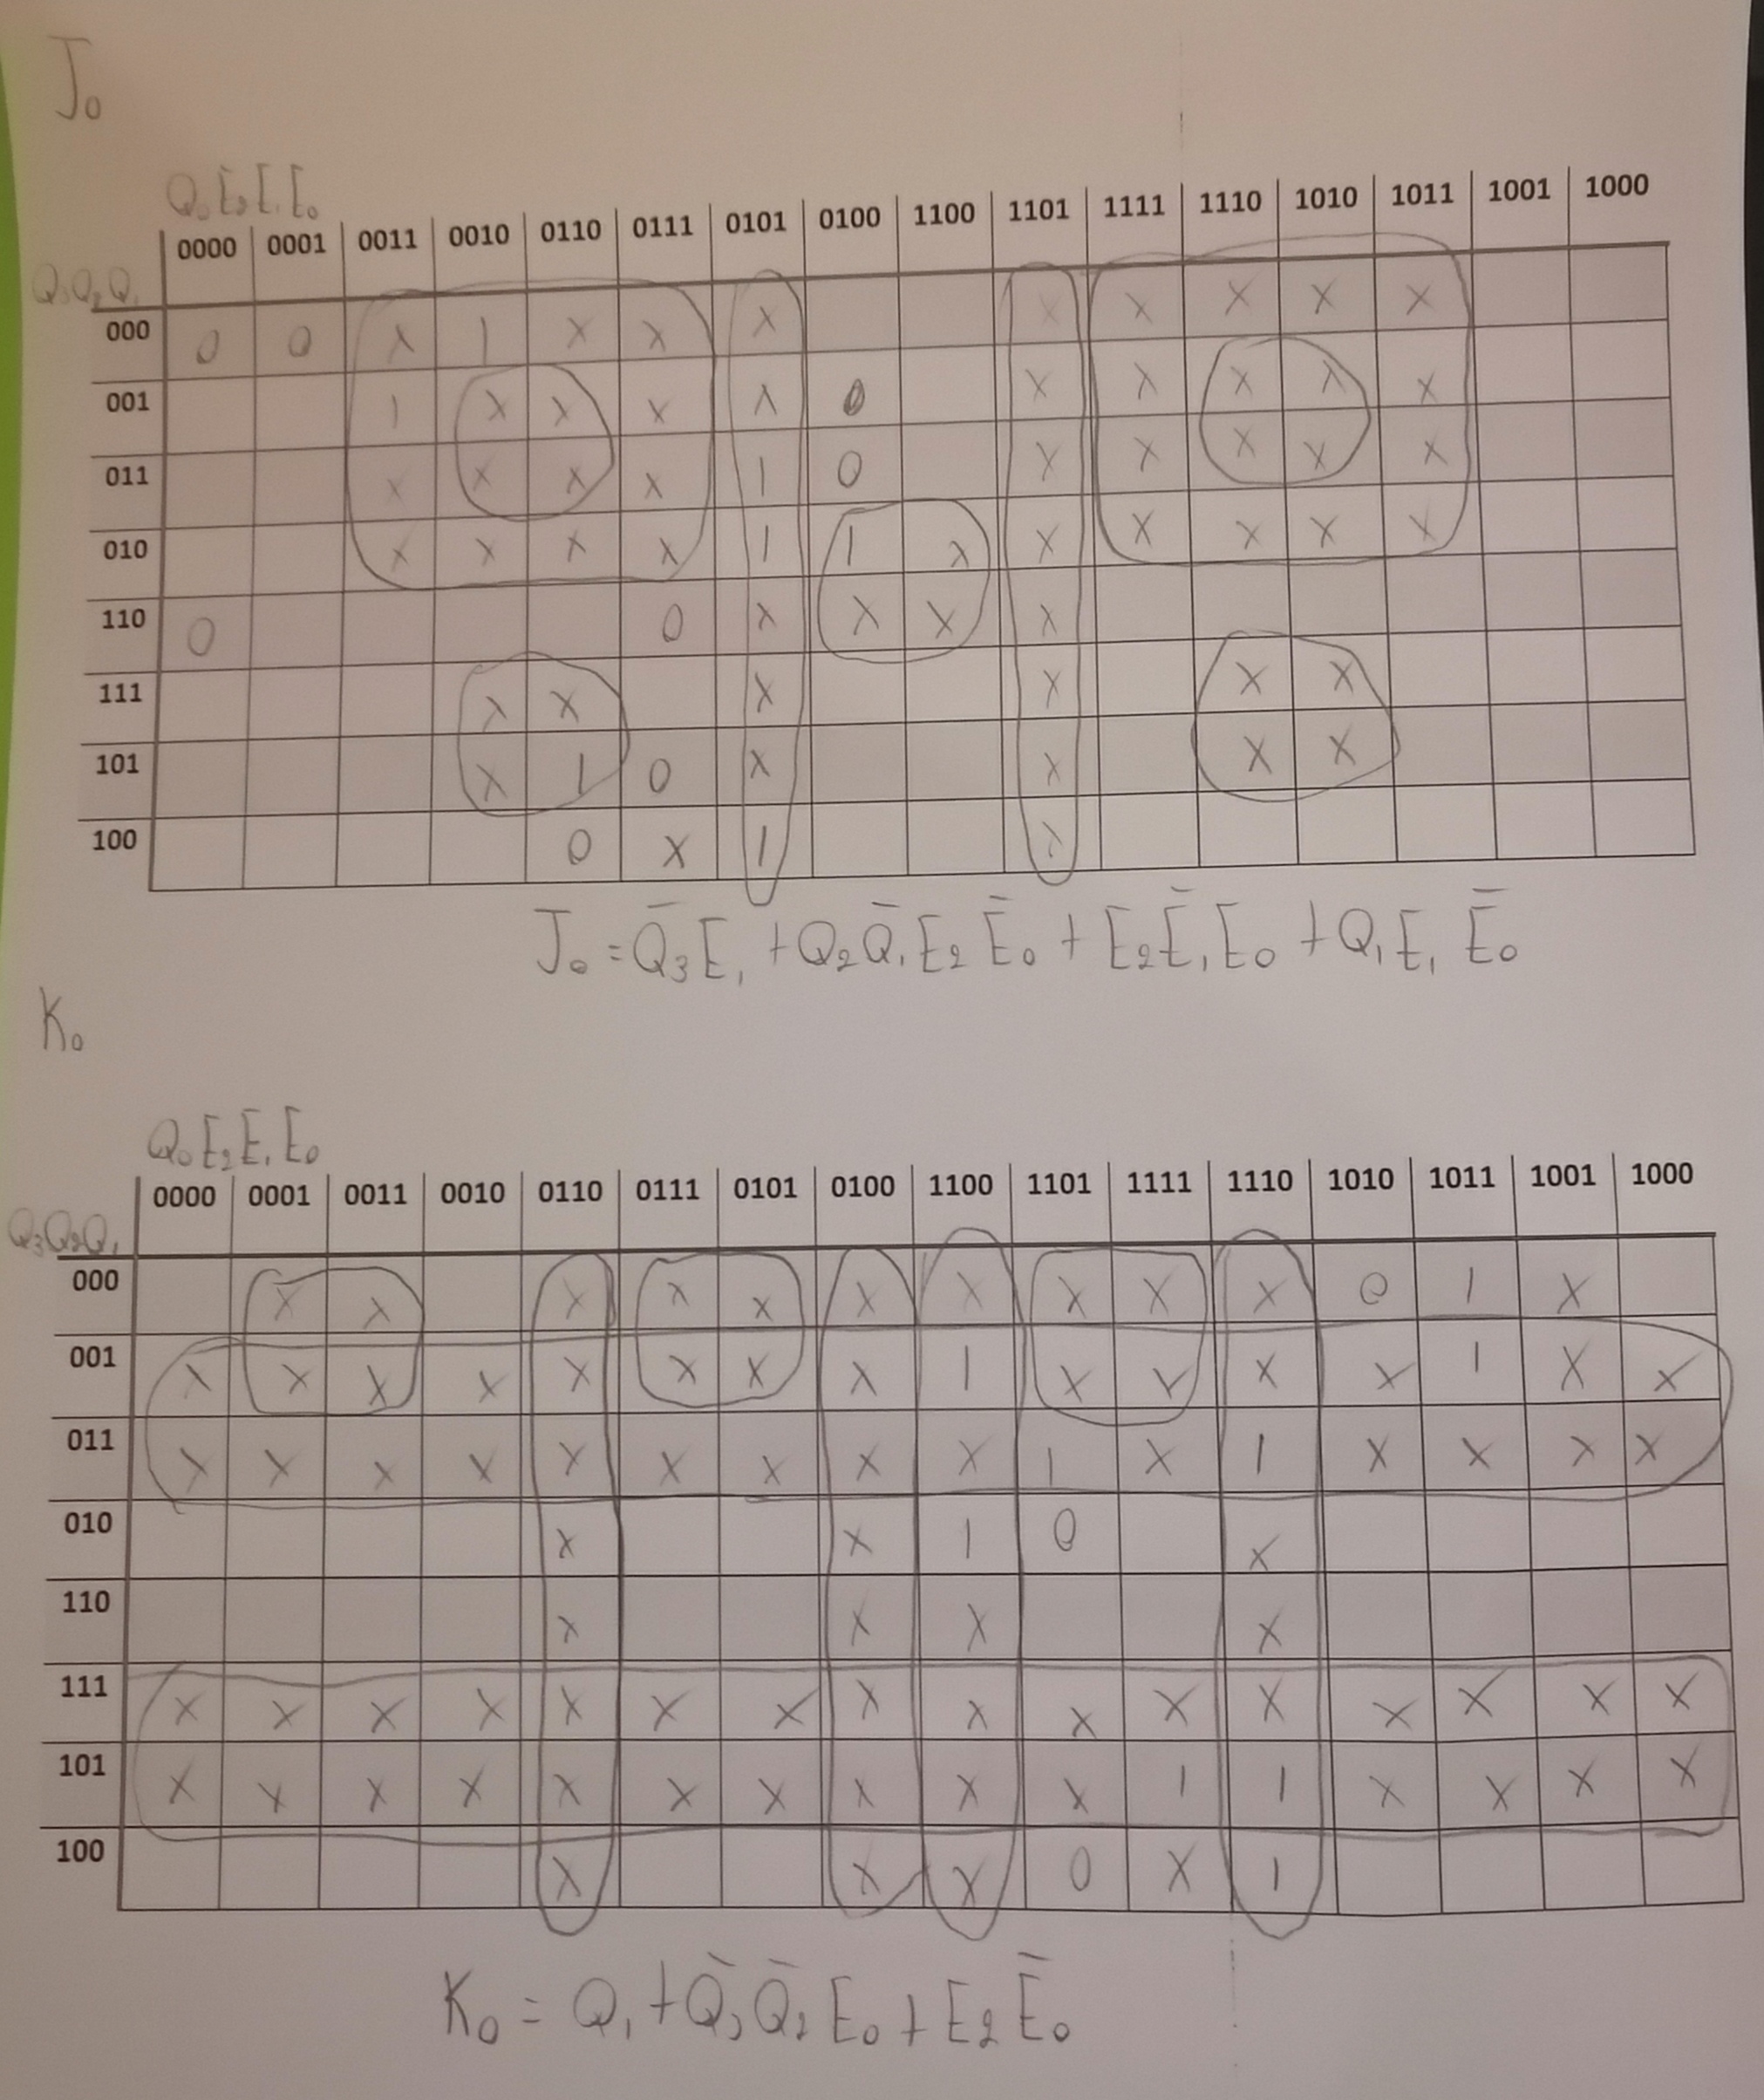 J₀
Q₀E₂E₁E₀
0000 0001 0011 0010 0110 0111 0101 0100 1100 1101 1111 1110 1010 1011 1001 1000
Q₃Q₂Q₁
000 0 0 X 1 X X X X X X X X
001 1 X X X X 0 X X X X X
011 X X X X 1 0 X X X X X
010 X X X X 1 1 X X X X X X
110 0 0 X X X X
111 X X X X X X
101 X 1 0 X X X X
100 0 X 1 X
J₀ = Q̄₃E₁ + Q₂Q̄₁E₂Ē₀ + E₂Ē₁E₀ + Q₁E₁Ē₀
K₀
Q₀E₂E₁E₀
0000 0001 0011 0010 0110 0111 0101 0100 1100 1101 1111 1110 1010 1011 1001 1000
Q₃Q₂Q₁
000 X X X X X X X X X X 0 1 X
001 X X X X X X X X 1 X X X X 1 X X
011 X X X X X X X X X 1 X 1 X X X X
010 X X 1 0 X
110 X X X X
111 X X X X X X X X X X X X X X X X
101 X X X X X X X X X X 1 1 X X X X
100 X X X 0 X 1
K₀ = Q₁ + Q̄₃Q̄₂E₀ + E₂Ē₀